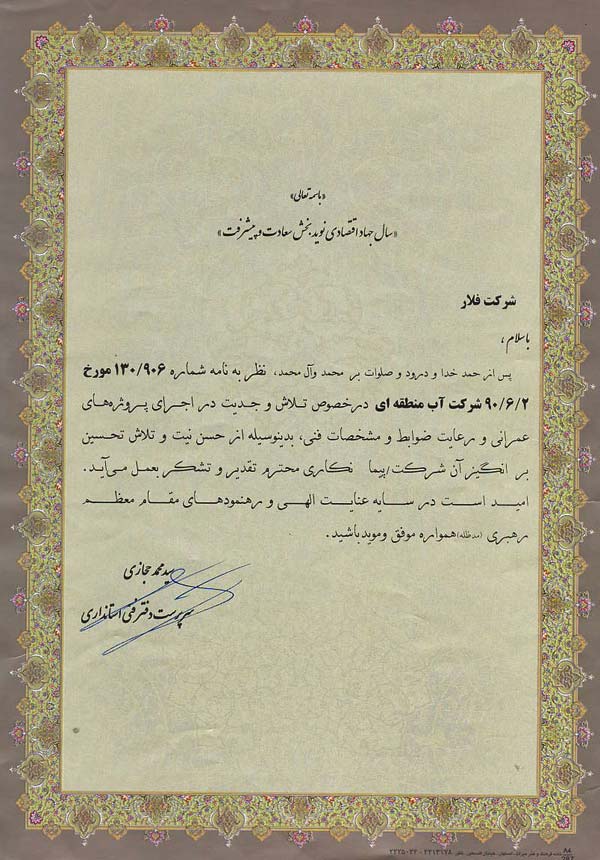 «باسمه تعالی»
«سال جهاد اقتصادی نوید بخش سعادت و پیشرفت»
شرکت فلار
باسلام ،
پس از حمد خدا و درود و صلوات بر محمد وآل محمد، نظر به نامه شماره ۱۳۰/۹۰۶ مورخ
۹۰/۶/۲ شرکت آب منطقه ای درخصوص تلاش و جدیت در اجرای پروژه‌های
عمرانی و رعایت ضوابط و مشخصات فنی، بدینوسیله از حسن نیت و تلاش تحسین
بر انگیز آن شرکت/پیما نکاری محترم تقدیر و تشکر بعمل می‌آید.
امید است در سایه عنایت الهی و رهنمودهای مقام معظم
رهبری (مدظله) همواره موفق وموید باشید.
سید محمد حجازی
سرپرست دفتر فنی استانداری